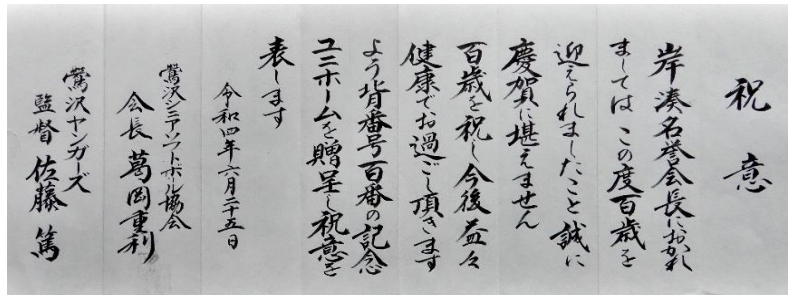 祝意
岸湊名誉会長におかれ
ましてはこの度百歳を
迎えられましたこと誠に
慶賀に堪えません
百歳を祝し今後益々
健康でお過ごし頂きます
よう背番号百番の記念
ユニホームを贈呈し祝意を
表します
令和四年六月二十五日
鶯沢シニアソフトボール協会
会長 葛岡重利
鶯沢ヤンガーズ
監督 佐藤 篤